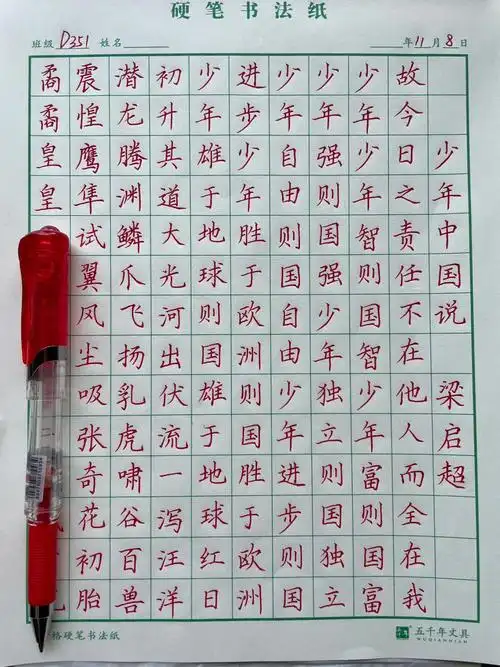 硬笔书法纸
班级 D351 姓名 年11月8日
少年中国说 梁启超
故今日之责任不在他人而全在我
少年少年智则国智少年富则国富
少年强则国强少年独立则国独立
少年自由则国自由少年进步则国
进步少年胜于欧洲则国胜于欧洲
少年雄于地球则国雄于地球红日
初升其道大光河出伏流一泻汪洋
潜龙腾渊鳞爪飞扬乳虎啸谷百兽
震惶鹰隼试翼风尘吸张奇花初胎
矞矞皇皇
格硬笔书法纸
五千年文具
WUQIANNIAN